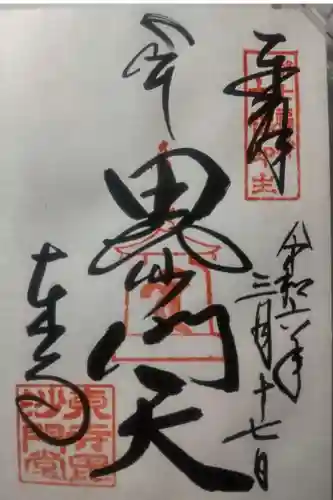 奉拝
令和六年
三月十七日
毘沙門天
東寺
東寺毘
沙門堂